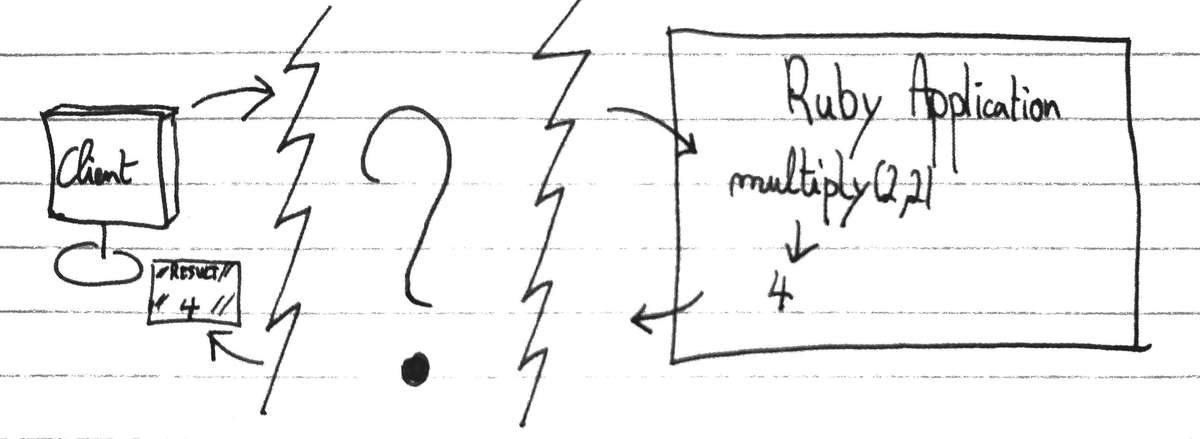 Client
RESULT
4
?
Ruby Application
multiply(2,2)
4